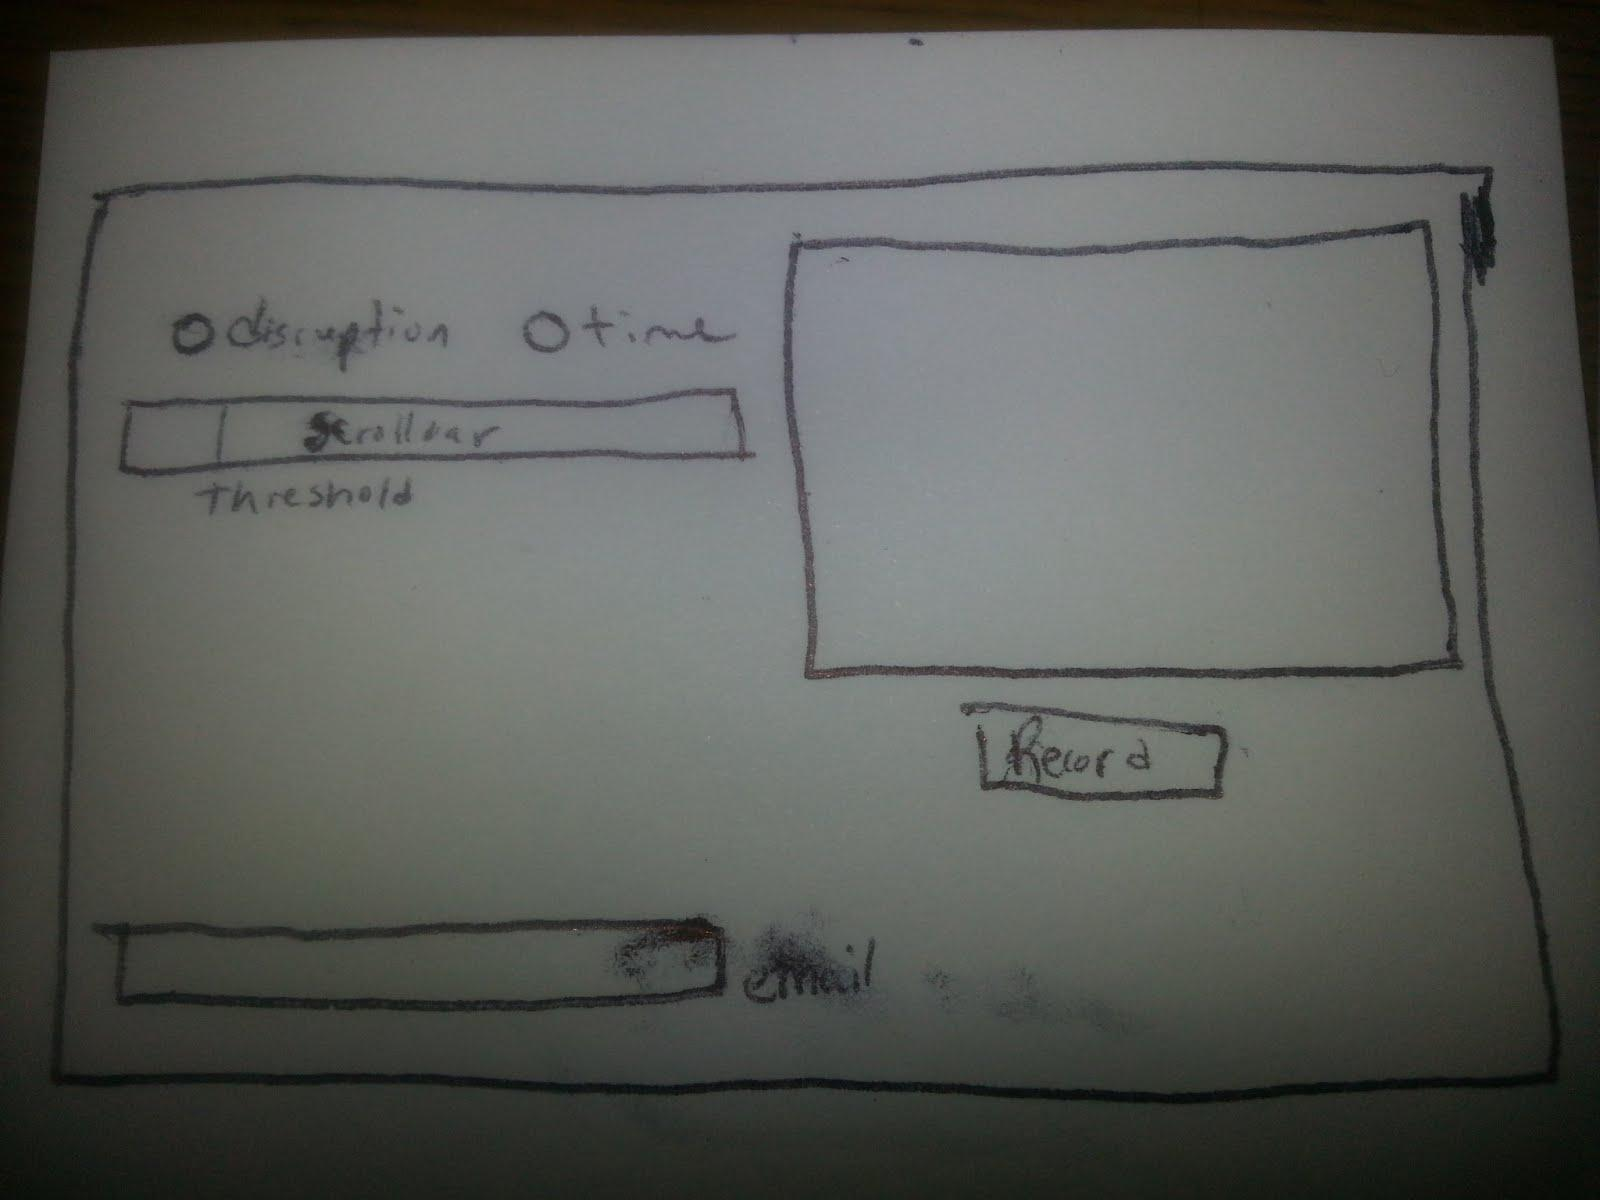 disruption time
Scrollbar
Threshold
Record
email